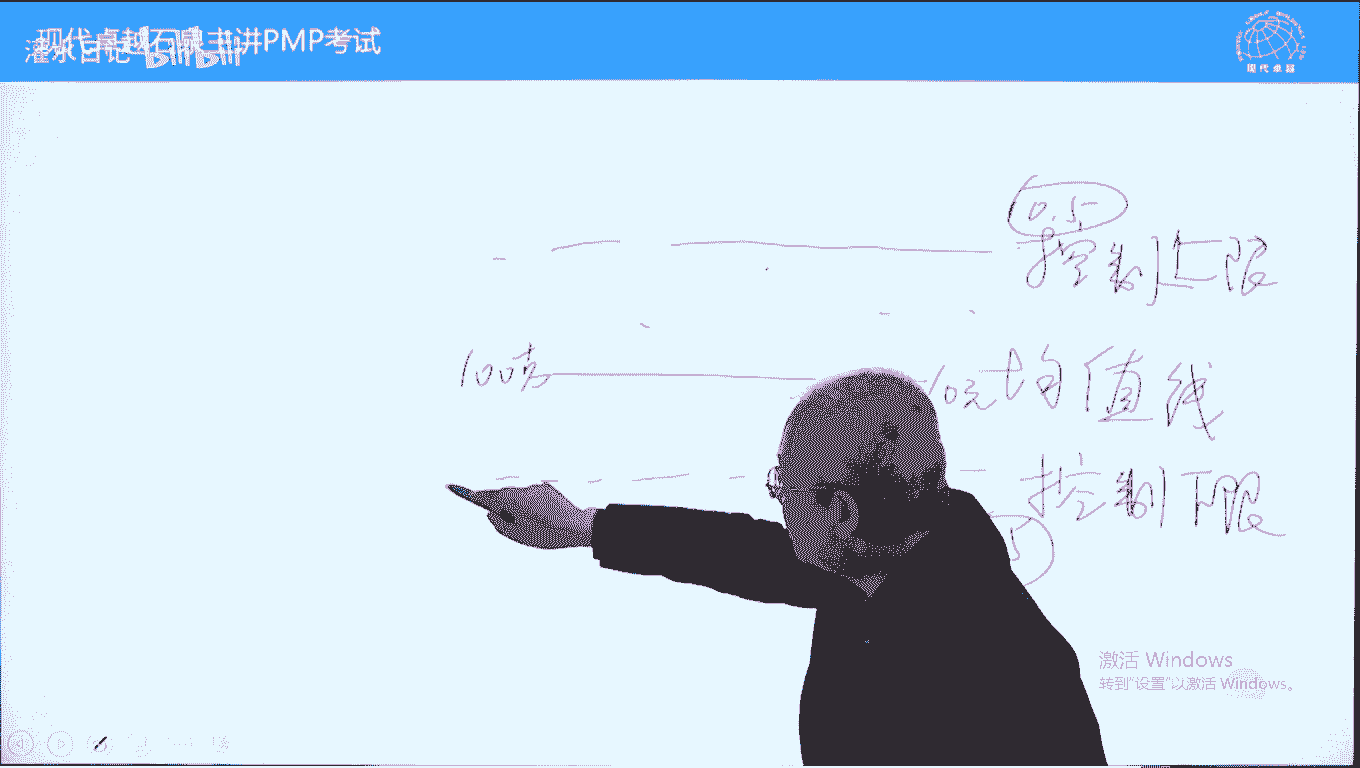 现代卓越石泉主讲PMP考试
灌水日记 bilibili
现代卓越
0.5
控制上限
100克
10元 均值线
控制下限
5
激活 Windows
转到"设置"以激活 Windows。